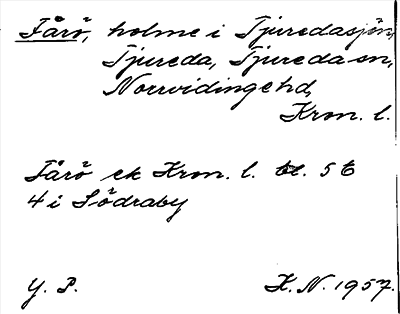 Fårö, holme i Tjuredasjön,
Tjureda, Tjureda sn,
Norrvidinge hd,
Kron. l.
Fårö ek Kron. l. bl. 5 E
4 i Södraby
Y. P.
K. N. 1957.